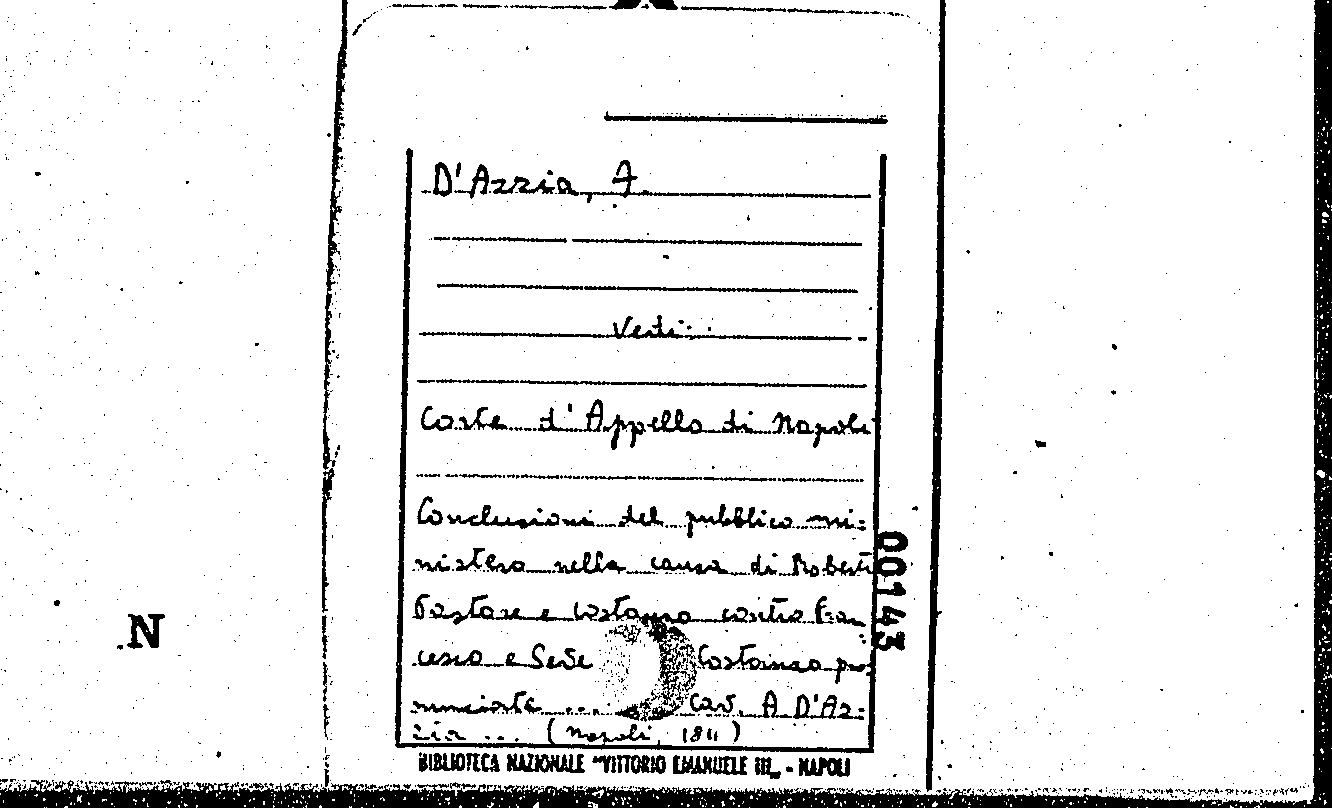 D'Azzia, A.
Vesti:
Corte d'Appello di Napoli
Conclusioni del pubblico mi-
nistero nella causa di Roberti
Pastore e Costanzo contro Fran
cesco e Costanzo pro
nunciate ... cav. A D'Az-
zia ... (Napoli, 1811)
00143
BIBLIOTECA NAZIONALE "VITTORIO EMANUELE III" - NAPOLI
N